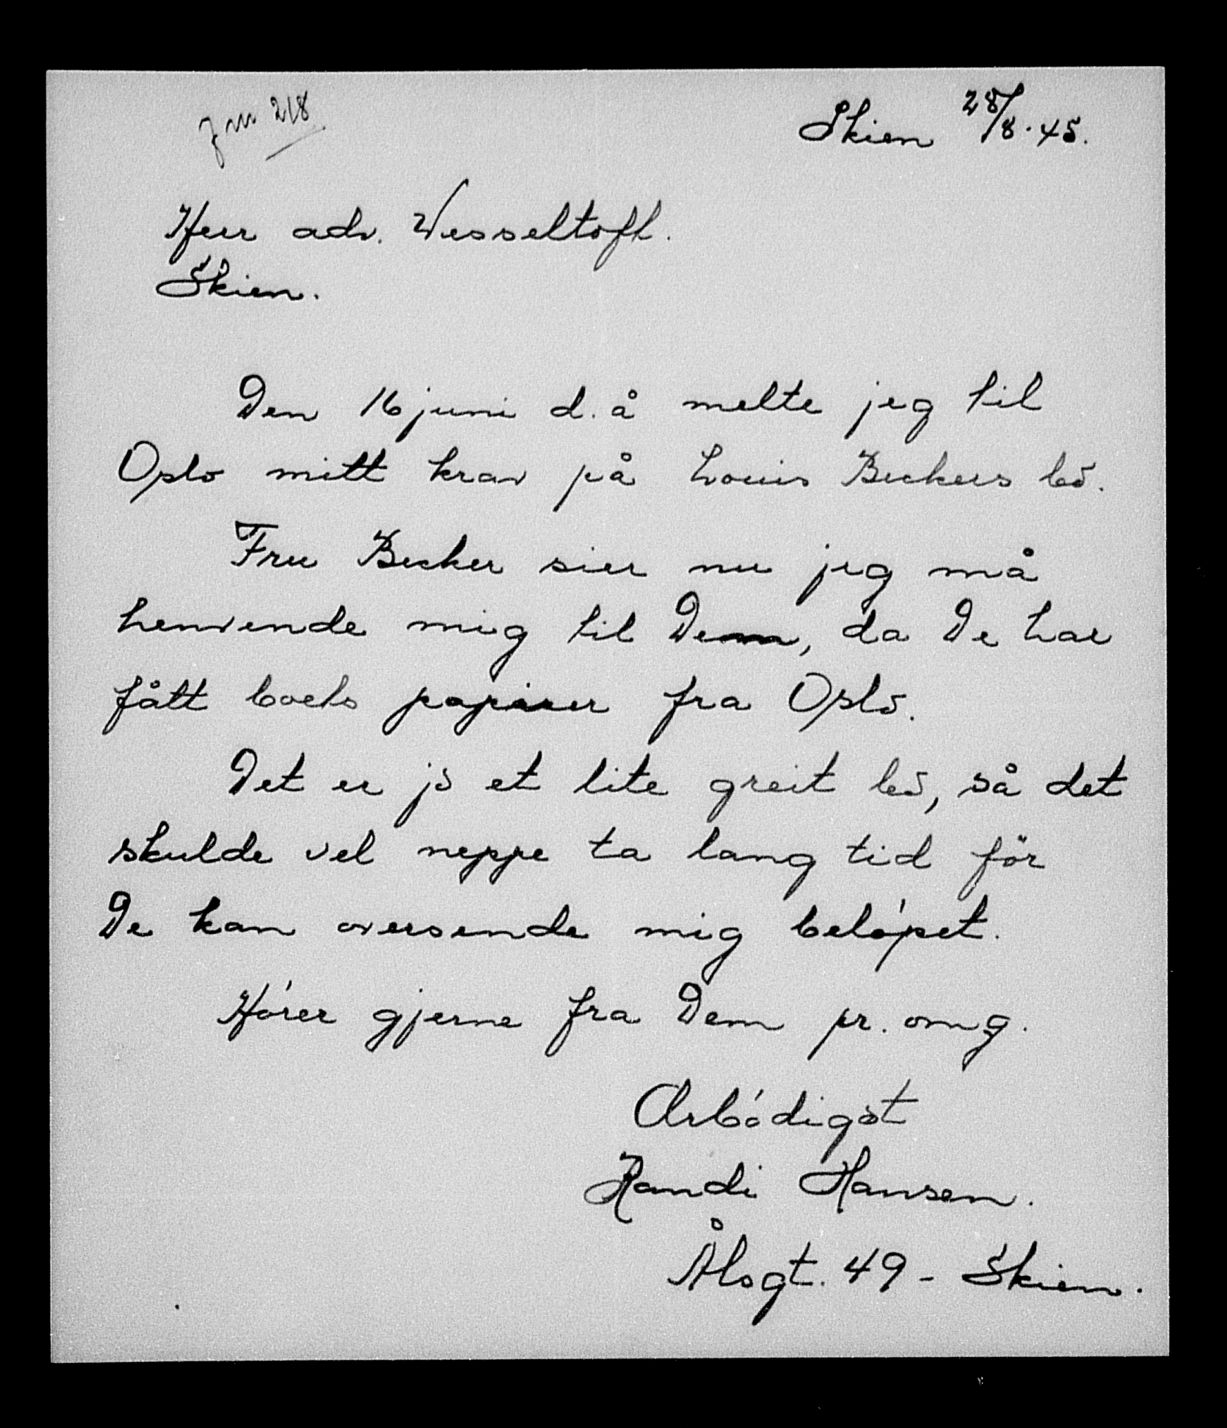 Skien 28/8. 45.
Herr adv. Wesseltoft.
Skien.
Den 16 juni d. å melte jeg til
Oslo mitt krav på Louis Beckers bo.
Fru Becker sier nu jeg må
henvende mig til Dem, da De har
fått boets papirer fra Oslo.
Det er jo et lite greit bo, så det
skulde vel neppe ta lang tid för
De kan oversende mig beløpet.
Hører gjerne fra Dem pr. omg.
Ærbødigst
Randi Hansen.
Ålsgt. 49 - Skien.